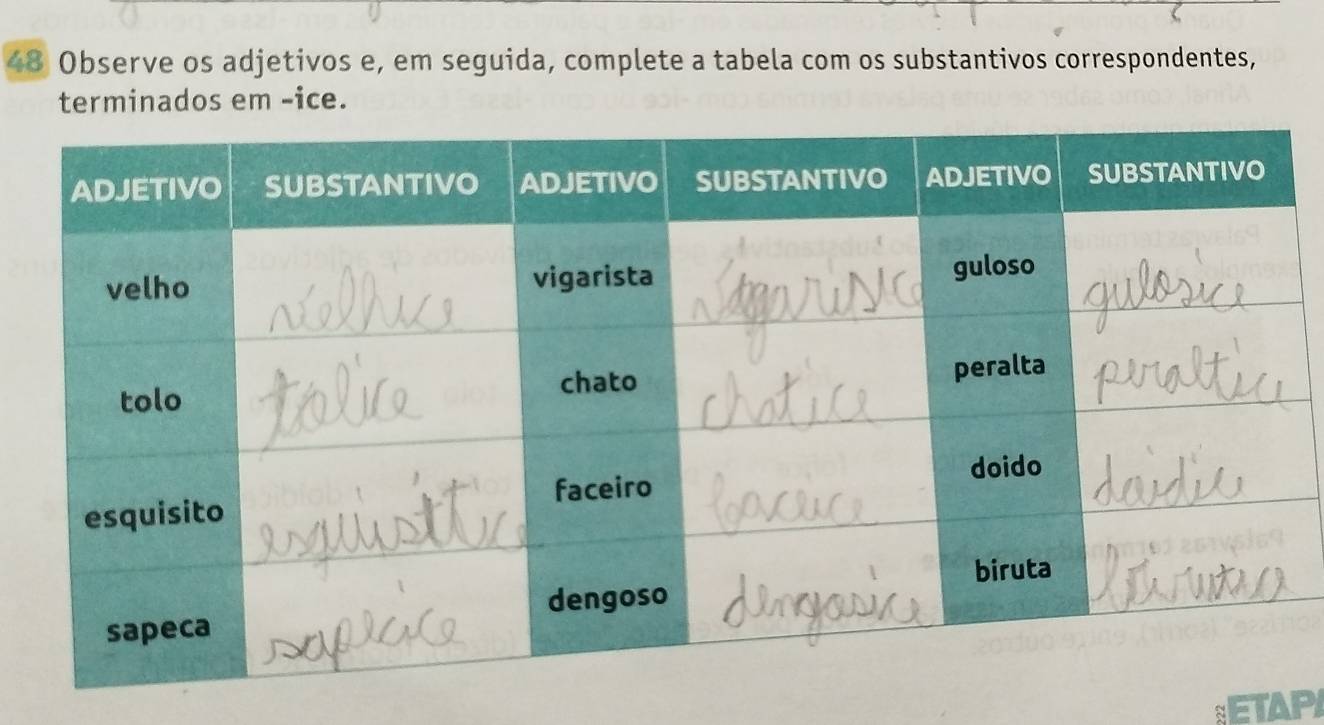 48 Observe os adjetivos e, em seguida, complete a tabela com os substantivos correspondentes,
terminados em -ice.
ADJETIVO SUBSTANTIVO ADJETIVO SUBSTANTIVO ADJETIVO SUBSTANTIVO
velho velhice vigarista vigarisice guloso gulosice
tolo tolice chato chatice peralta peraltice
esquisito esquisitice faceiro faceice doido doidice
sapeca sapecice dengoso dengosice biruta birutice
222 ETAPA